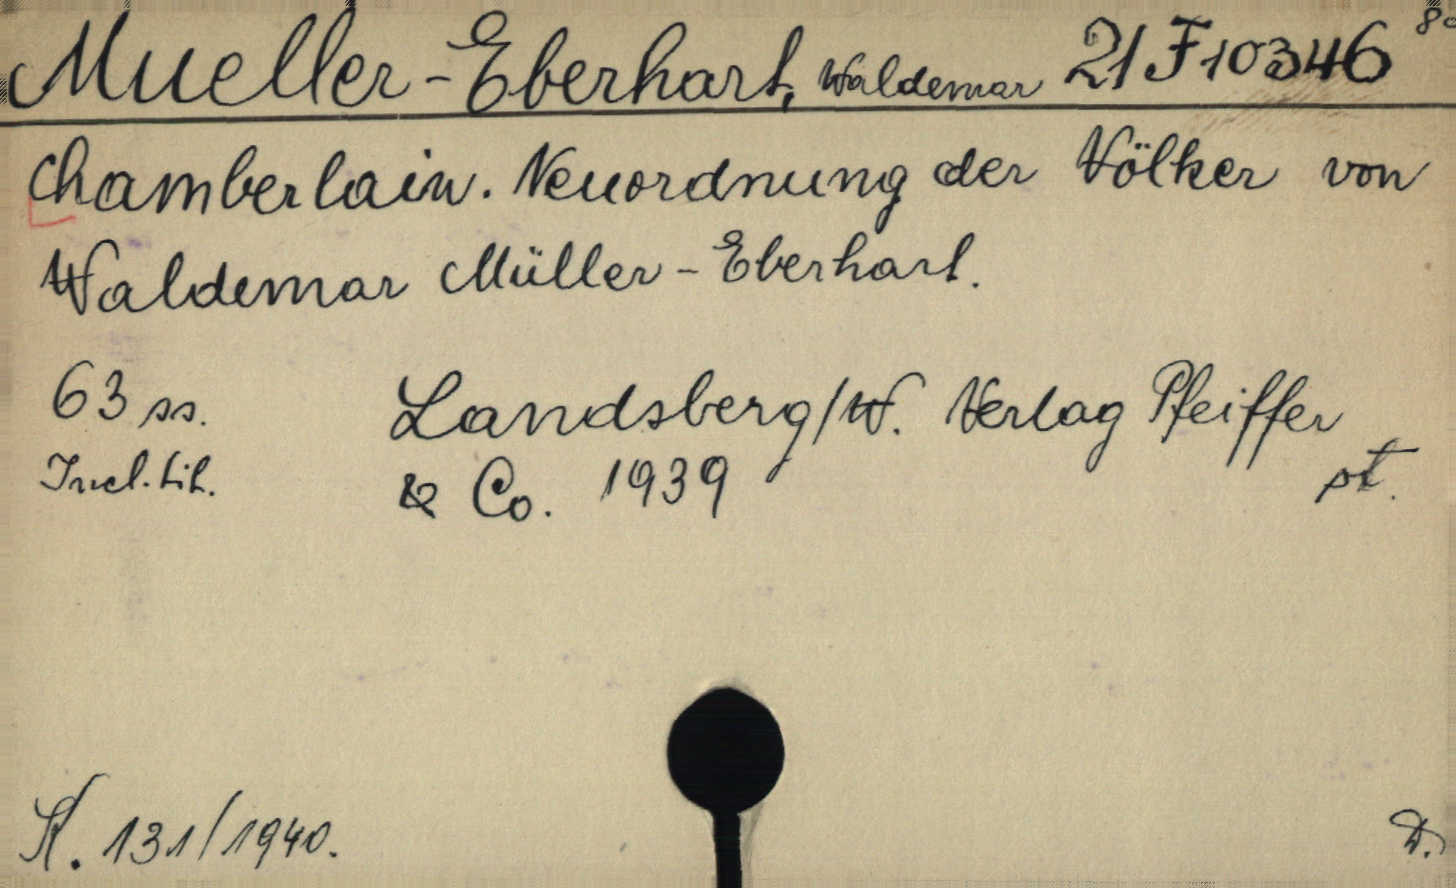 Mueller-Eberhart, Waldemar 21 F 10346
Chamberlain. Neuordnung der Völker von
Waldemar Müller-Eberhart.
63 ss. Landsberg/W. Verlag Pfeiffer
Incl. tit. & Co. 1939 pt.
K. 131/1940. D.